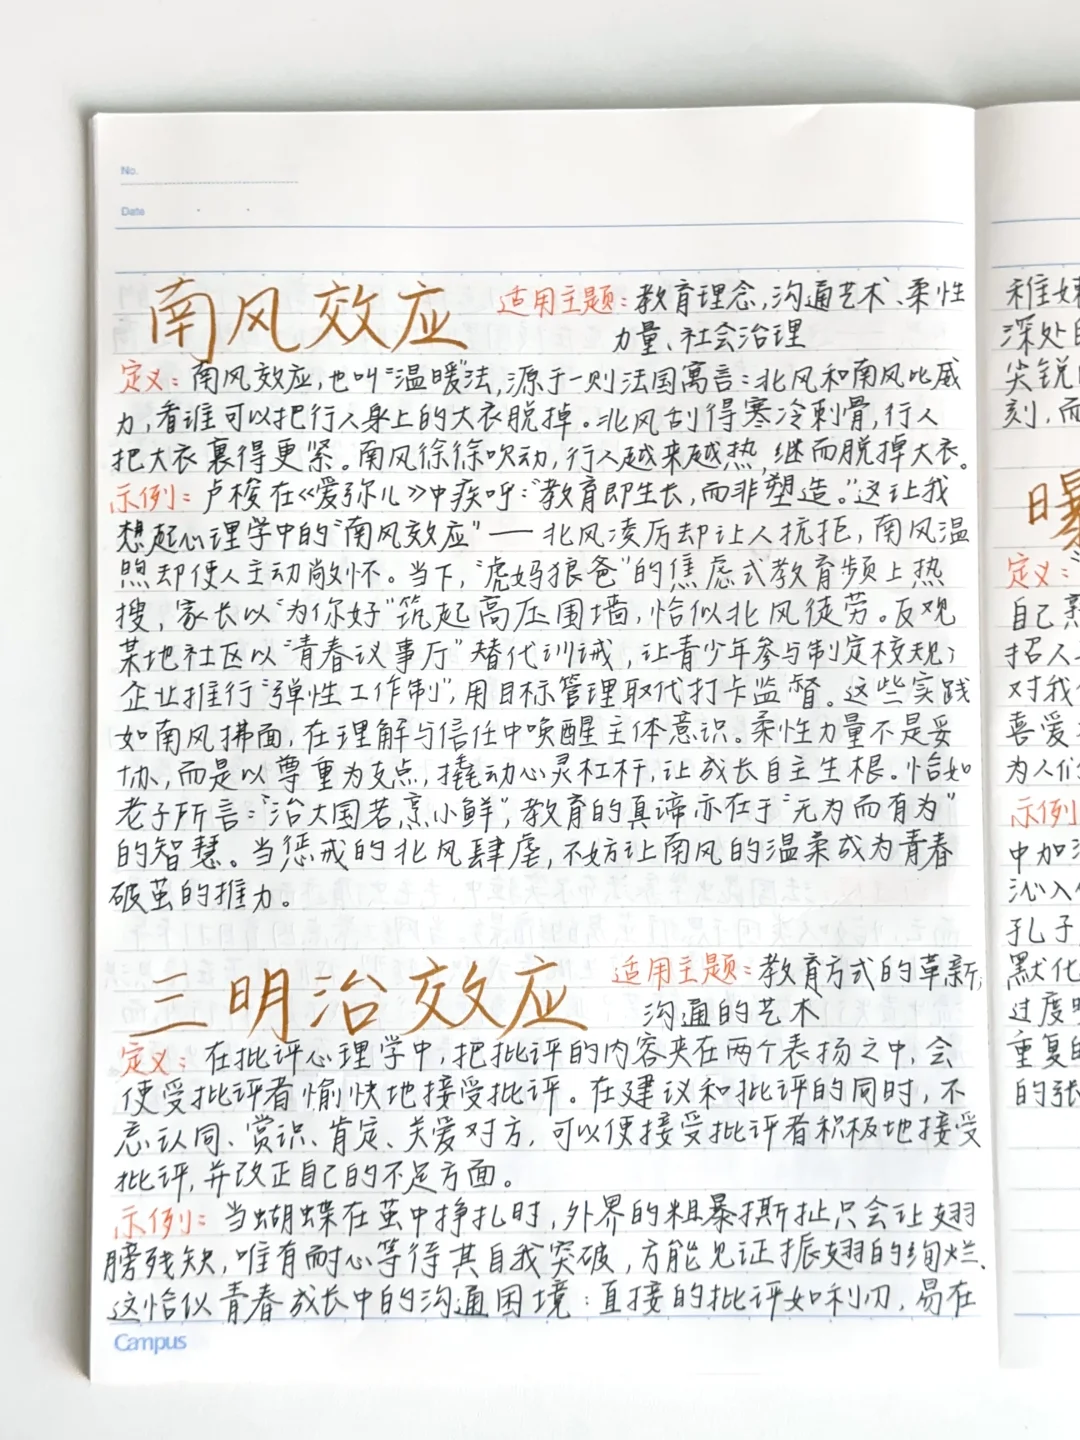 No.
Date
南风效应 适用主题：教育理念，沟通艺术、柔性
力量、社会治理
定义：南风效应，也叫“温暖”法，源于一则法国寓言：北风和南风比威
力，看谁可以把行人身上的大衣脱掉。北风刮得寒冷刺骨，行人
把大衣裹得更紧。南风徐徐吹动，行人越来越热，继而脱掉大衣。
示例：卢梭在《爱弥儿》中疾呼：“教育即生长，而非塑造。”这让我
想起心理学中的“南风效应”——北风凌厉却让人抗拒，南风温
煦却使人主动敞怀。当下，“虎妈狼爸”的焦虑式教育频上热
搜，家长以“为你好”筑起高压围墙，恰似北风徒劳。反观
某地社区以“青春议事厅”替代训诫，让青少年参与制定校规；
企业推行“弹性工作制”，用目标管理取代打卡监督。这些实践
如南风拂面，在理解与信任中唤醒主体意识。柔性力量不是妥
协，而是以尊重为支点，撬动心灵杠杆，让成长自主生根。恰如
老子所言：“治大国若烹小鲜”，教育的真谛亦在于“无为而有为”
的智慧。当惩戒的北风肆虐，不妨让南风的温柔成为青春
破茧的推力。
三明治效应 适用主题：教育方式的革新，
沟通的艺术
定义：在批评心理学中，把批评的内容夹在两个表扬之中，会
使受批评者愉快地接受批评。在建议和批评的同时，不
忘认同、赏识、肯定、关爱对方，可以使接受批评者积极地接受
批评，并改正自己的不足方面。
示例：当蝴蝶在茧中挣扎时，外界的粗暴撕扯只会让翅
膀残缺，唯有耐心等待其自我突破，方能见证振翅的绚烂。
这恰似青春成长中的沟通困境：直接的批评如利刃，易在
Campus
稚嫩
深处的
尖锐
刻，而
曝
定义：
自己
招人
对我
喜爱
为人们
示例
中加
沁入
孔子
默化
过度曝
重复的
的张